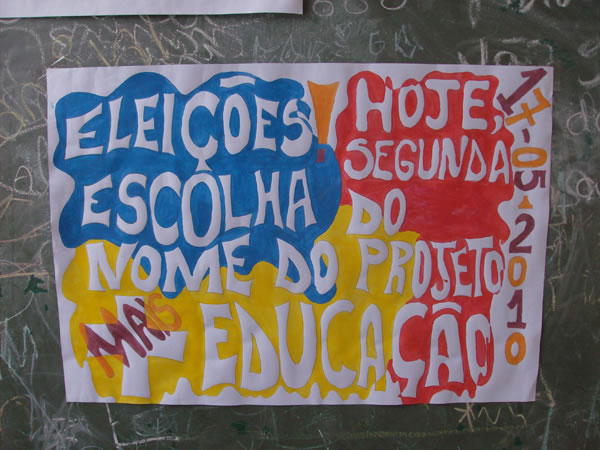 ELEIÇÕES!
HOJE,
SEGUNDA
17-05-2010
ESCOLHA DO
NOME DO PROJETO
+ MAIS EDUCAÇÃO